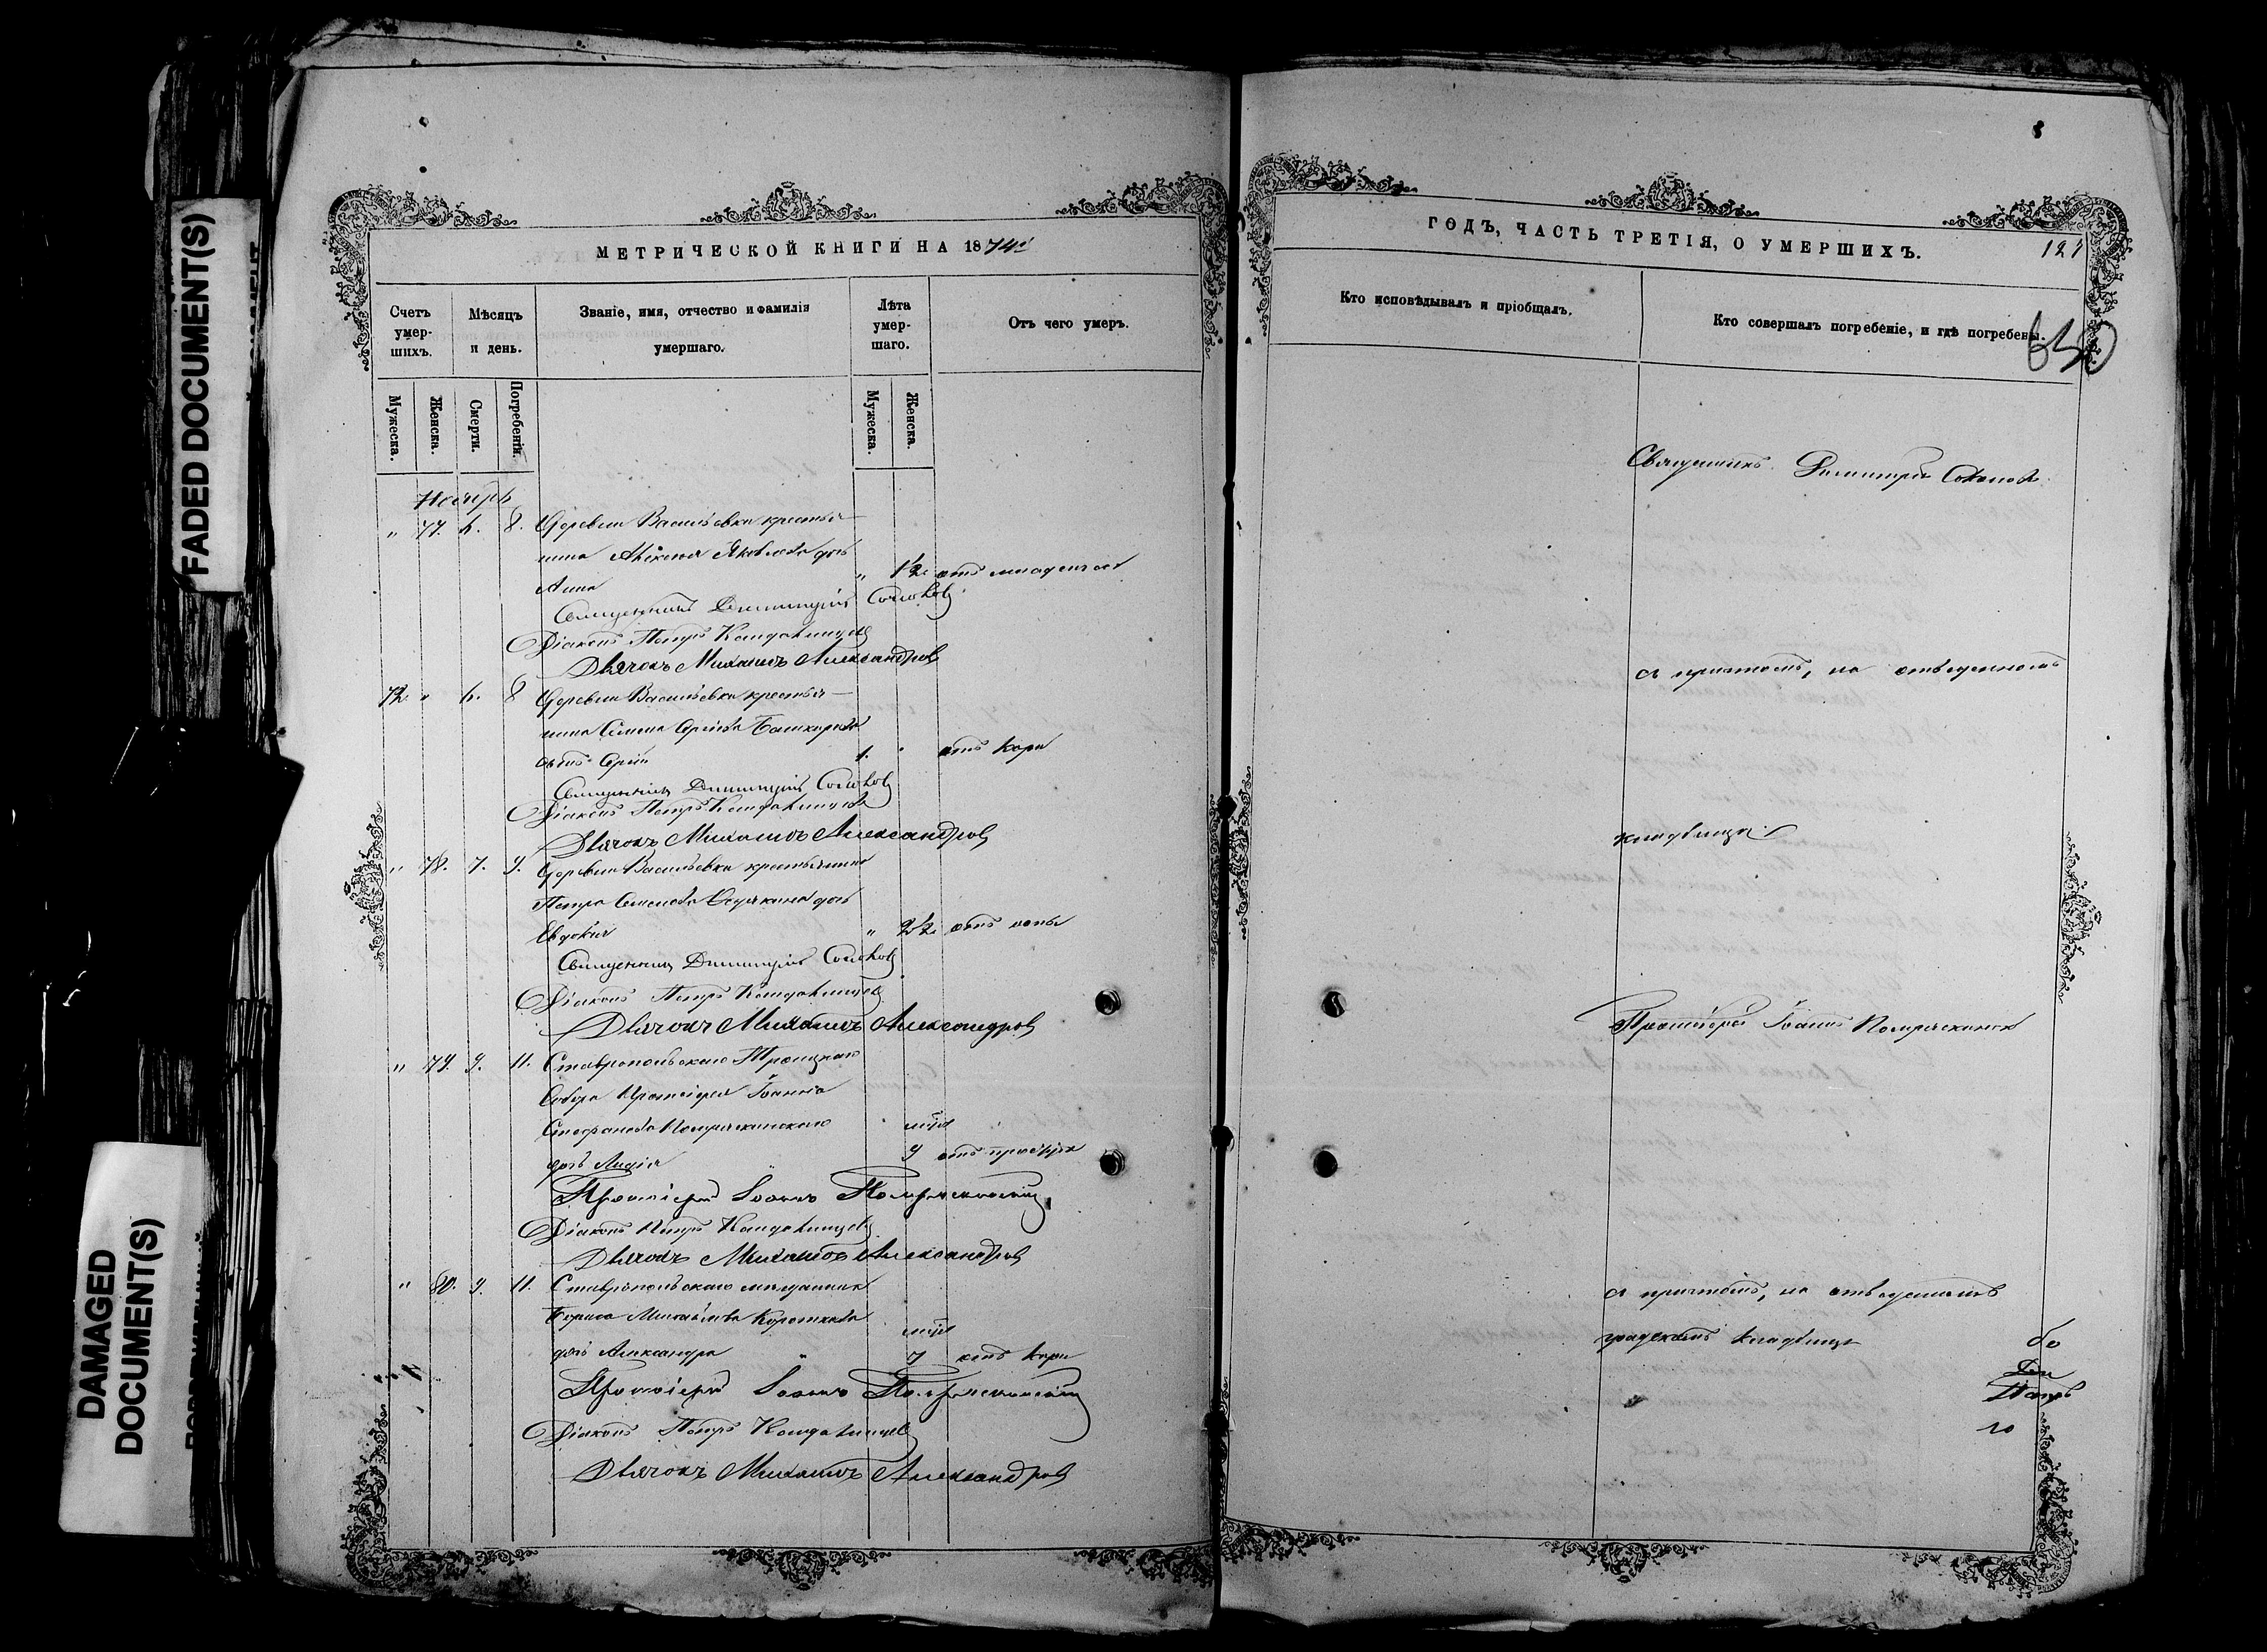 FADED DOCUMENT(S)
DAMAGED
DOCUMENT(S)
МЕТРИЧЕСКОЙ КНИГИ НА 1874й
Счетъ умер-шихъ.
Мѣсяцъ и день.
Званіе, имя, отчество и фамилія умершаго.
Лѣта умер-шаго.
Отъ чего умеръ.
Мужеска.
Женска.
Смерти.
Погребенія.
Мужеска.
Женска.
Ноябрь
" 77. 6. 8. Деревни Васильевки крестья-
нина Алексѣя Яковлева дочь
Анна " 1/2 отъ младенчес
Священникъ Димитрій Соколовъ
Діаконъ Петръ
Дьячокъ Михаилъ Александровъ
72. " 6. 8 Деревни Васильевки крестья-
нина Семена Сергѣева Башкирова
сынъ Сергій 1. " отъ кори
Священникъ Димитрій Соколовъ
Діаконъ Петръ
Дьячокъ Михаилъ Александровъ
" 78. 7. 9. Деревни Васильевки крестьянина
Петра Семенова дочь
Евдокія " 2 1/2 отъ оспы
Священникъ Димитрій Соколовъ
Діаконъ Петръ
Дьячокъ Михаилъ Александровъ
" 79. 9. 11. Ставропольскаго Троицкаго
Собора Протоіерея Іоанна
Стефанова Помряскинскаго мѣся
дочь Лидія " 9 отъ
Протоіерей Іоаннъ Помряскинскій
Діаконъ Петръ
Дьячокъ Михаилъ Александровъ
" 80. 9. 11. Ставропольскаго мѣщанина
Бориса Михайлова Короткова мѣся
дочь Александра " 7 отъ кори
Протоіерей Іоаннъ Помряскинскій
Діаконъ Петръ
Дьячокъ Михаилъ Александровъ
ГОДЪ, ЧАСТЬ ТРЕТІЯ, О УМЕРШИХЪ.
121
Кто исповѣдывалъ и пріобщалъ.
Кто совершалъ погребеніе, и гдѣ погребены.
630
Священникъ Димитрій Соколовъ
съ причтомъ, на отведенномъ
кладбищѣ
Протоіерей Іоаннъ Помряскинскій
съ причтомъ, на отведенномъ
градскомъ кладбищѣ